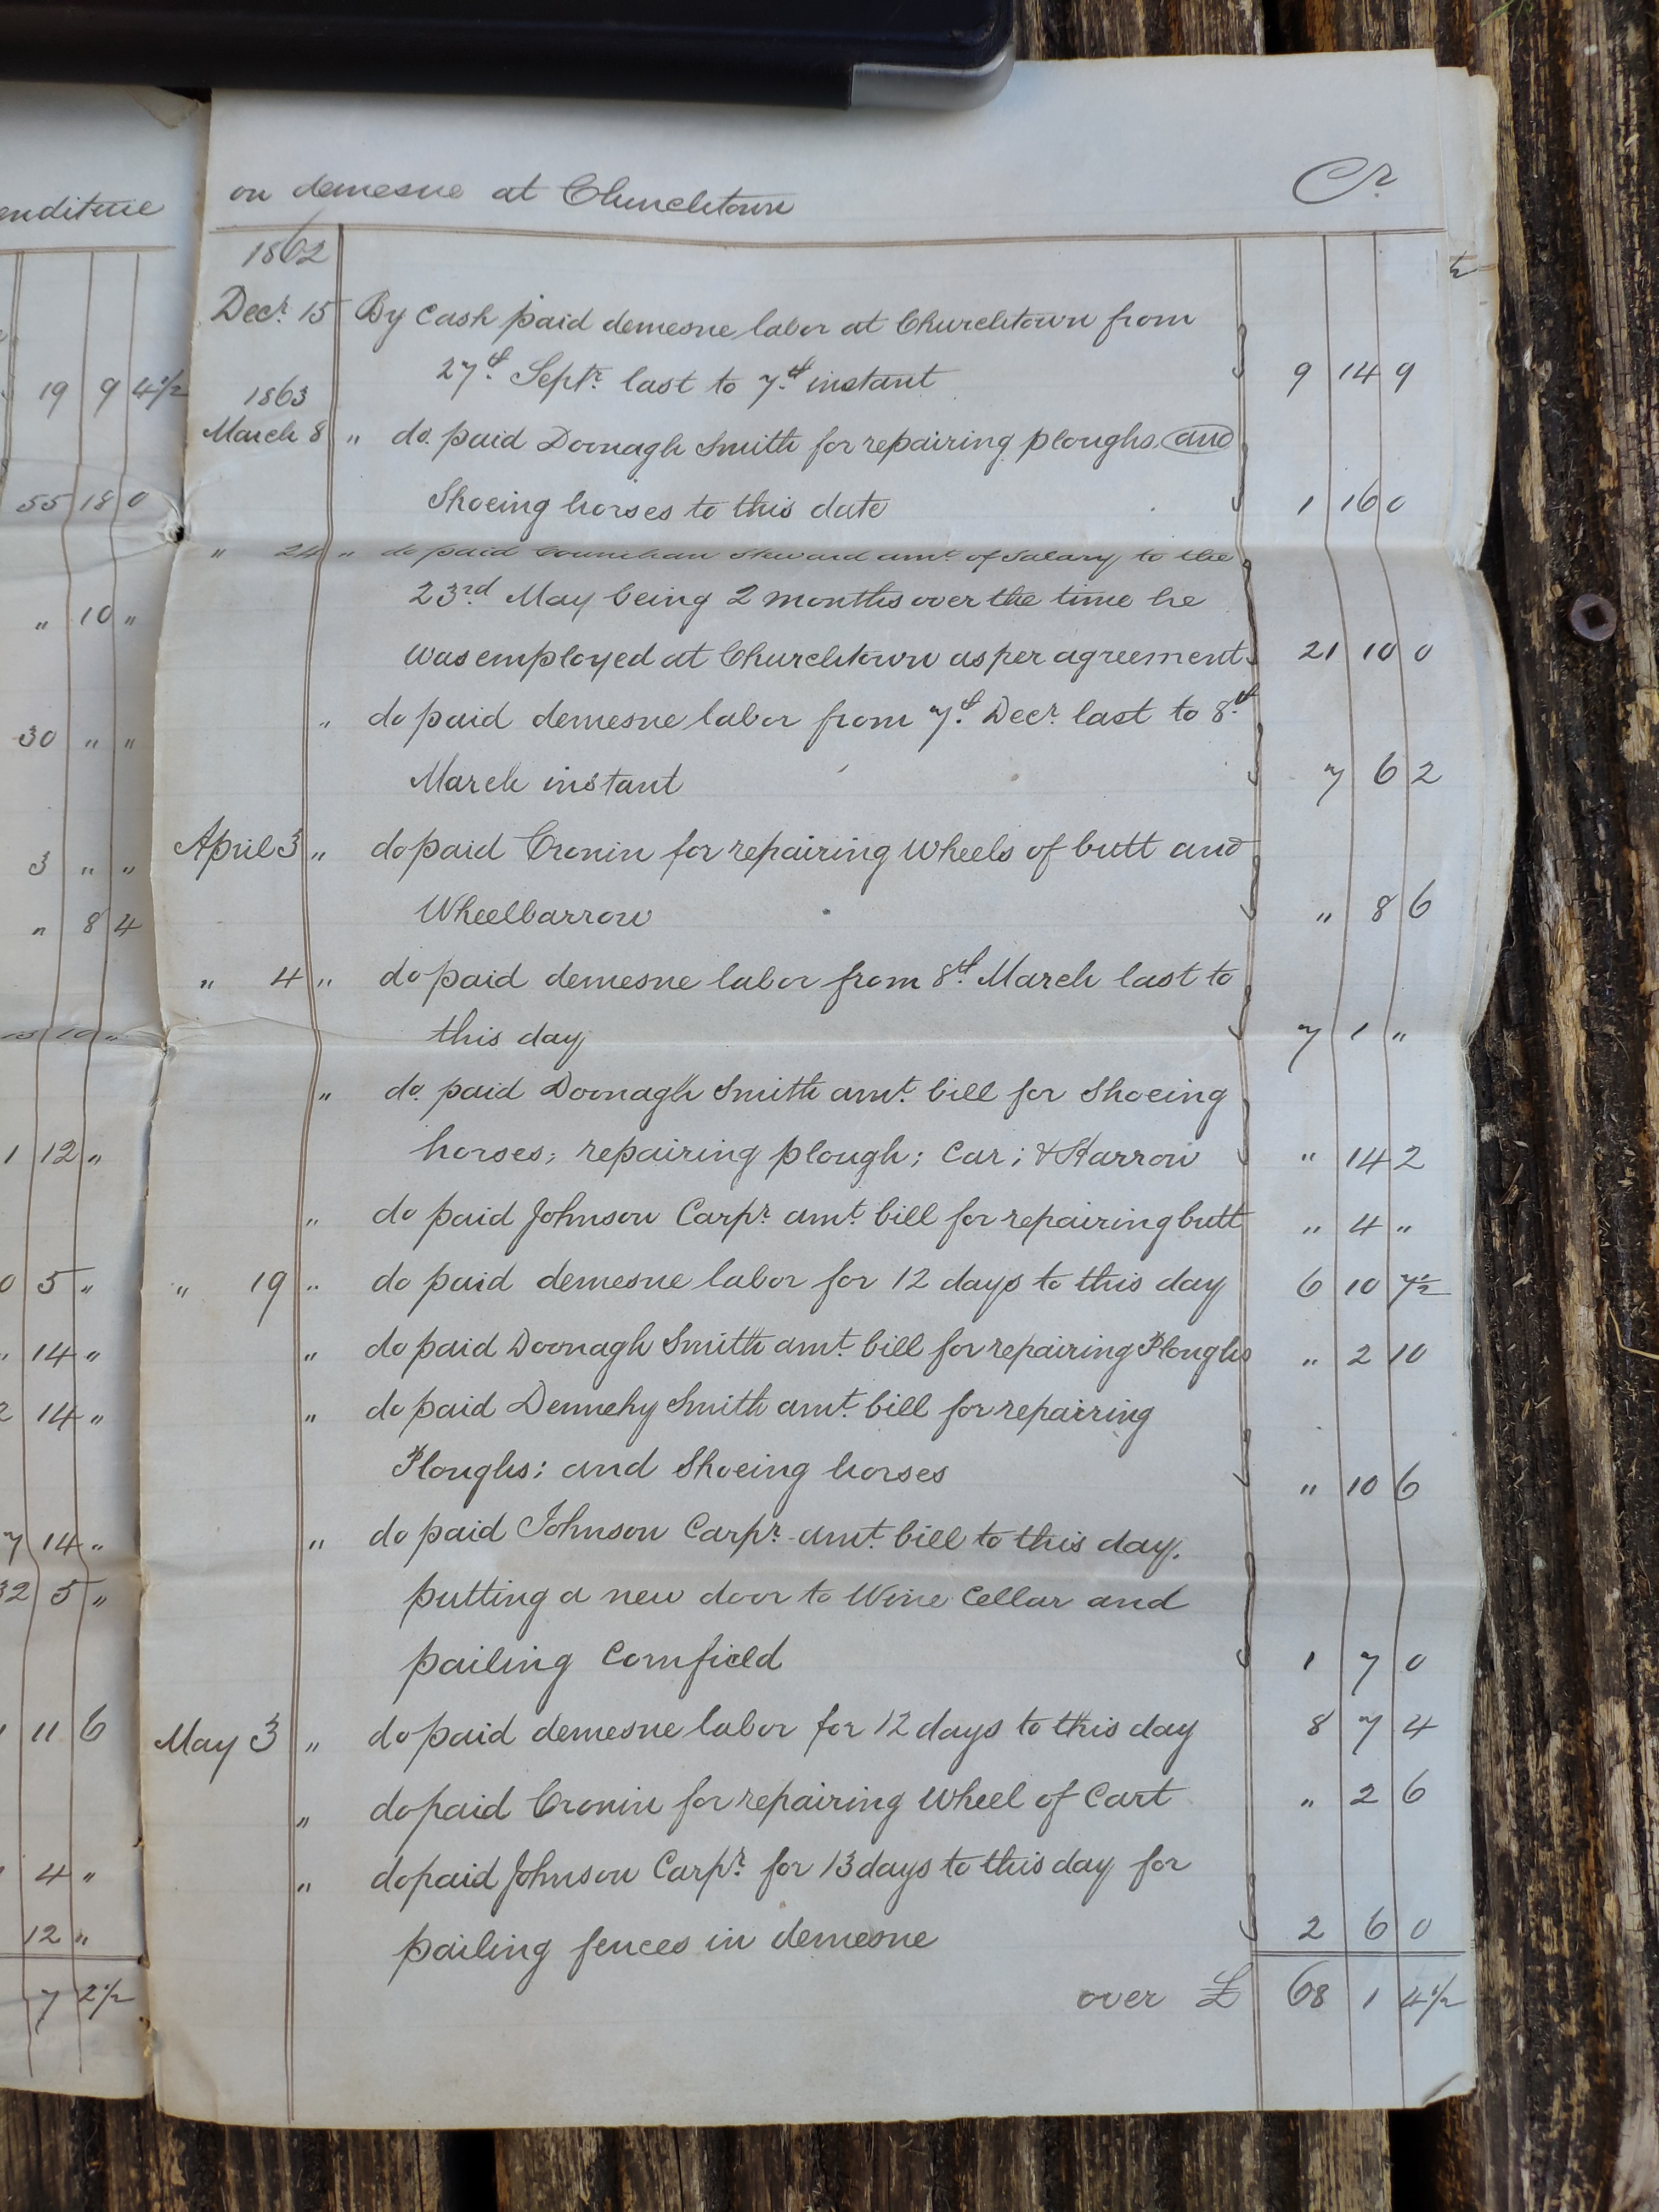 enditure
19 9 4½
55 18 0
„ 10 „
30 „ „
3 „ „
„ 8 4
10 „
1 12 „
0 5 „
„ 14 „
2 14 „
7 14 „
32 5 „
11 6
4 „
12 „
7 2½
on demesne at Churchtown Cr
1862
Decr. 15 By Cash paid demesne labor at Churchtown from
27th Septr. last to 7th instant 9 14 9
1863
March 8 „ do. paid Doonagh Smith for repairing ploughs and
Shoeing horses to this date 1 16 0
„ 24 „ do paid Counihan Steward amt. of Salary to the
23rd May being 2 months over the time he
was employed at Churchtown as per agreement 21 10 0
„ do paid demesne labor from 7th Decr. last to 8th
March instant 7 6 2
April 3 „ do paid Cronin for repairing Wheels of butt and
Wheelbarrow „ 8 6
„ 4 „ do paid demesne labor from 8th March last to
this day 7 1 „
„ do. paid Doonagh Smith amt. bill for Shoeing
horses; repairing plough; Car; & Harrow „ 14 2
„ do paid Johnson Carpr. amt. bill for repairing butt „ 4 „
„ 19 „ do paid demesne labor for 12 days to this day 6 10 7½
„ do paid Doonagh Smith amt. bill for repairing Ploughs „ 2 10
„ do paid Dennehy Smith amt. bill for repairing
Ploughs; and Shoeing horses „ 10 6
„ do paid Johnson Carpr. amt. bill to this day.
putting a new door to Wine Cellar and
pailing Cornfield 1 7 0
May 3 „ do paid demesne labor for 12 days to this day 8 7 4
„ do paid Cronin for repairing Wheel of Cart „ 2 6
„ do paid Johnson Carpr. for 13 days to this day for
pailing fences in demesne 2 6 0
over £ 68 1 4½